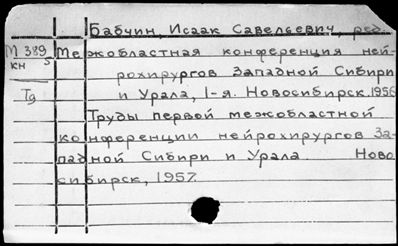 Бабчин, Исаак Савельевич, ред.
М 389 Межобластная конференция ней-
кн 5
рохирургов Западной Сибири
Тд и Урала, 1-я. Новосибирск. 1956
Труды первой межобластной
конференции нейрохирургов За-
падной Сибири и Урала. Ново
сибирск, 1957.